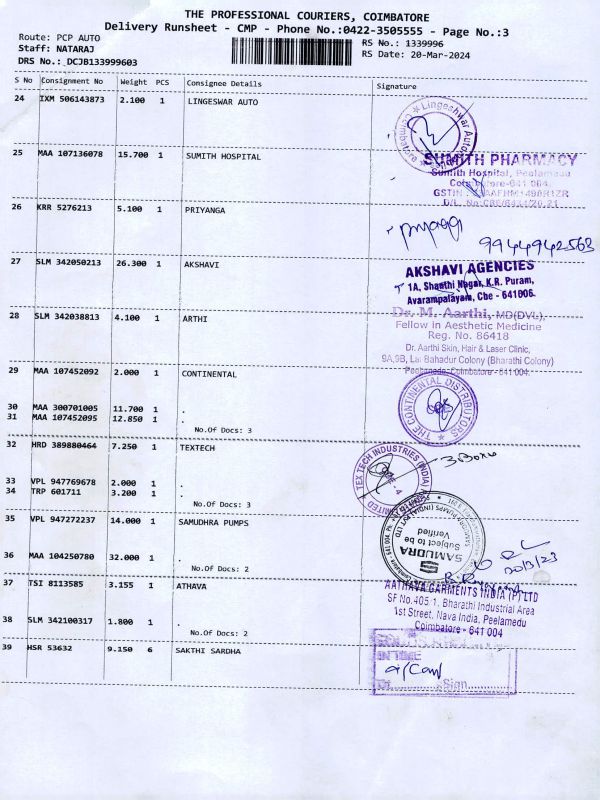 THE PROFESSIONAL COURIERS, COIMBATORE
Delivery Runsheet - CMP - Phone No.:0422-3505555 - Page No.:3
Route: PCP AUTO
Staff: NATARAJ
DRS No.: DCJB133999603
RS No.: 1339996
RS Date: 20-Mar-2024
S No Consignment No Weight PCS Consignee Details Signature
24 IXM 506143873 2.100 1 LINGESWAR AUTO
Lingeshwar Auto
Coimbatore
25 MAA 107136078 15.700 1 SUMITH HOSPITAL
SUMITH PHARMACY
Sumith Hospital, Peelamedu
Coimbatore-641 004.
26 KRR 5276213 5.100 1 PRIYANGA
9944942563
27 SLM 342050213 26.300 1 AKSHAVI
AKSHAVI AGENCIES
1A, Shanthi Nagar, K.R. Puram,
Avarampalayam, Cbe - 641006.
28 SLM 342038813 4.100 1 ARTHI
Dr. M. Aarthi, MD(DVL),
Fellow in Aesthetic Medicine
Reg. No. 86418
Dr. Aarthi Skin, Hair & Laser Clinic,
9A,9B, Lal Bahadur Colony (Bharathi Colony)
Peelamedu, Coimbatore - 641004
29 MAA 107452092 2.000 1 CONTINENTAL
THE CONTINENTAL DISTRIBUTORS
30 MAA 300701005 11.700 1 .
31 MAA 107452095 12.850 1 .
No.Of Docs: 3
32 HRD 389880464 7.250 1 TEXTECH
TEX TECH INDUSTRIES (INDIA)
3 Boxes
33 VPL 947769678 2.000 1 .
34 TRP 601711 3.200 1 .
No.Of Docs: 3
35 VPL 947272237 14.000 1 SAMUDHRA PUMPS
SAMUDRA
Subject to be
Verified
20/3/23
36 MAA 104250780 32.000 1 .
No.Of Docs: 2
37 TSI 8113585 3.155 1 ATHAVA
AATHAVA GARMENTS INDIA (P) LTD
SF No.405/1, Bharathi Industrial Area
1st Street, Nava India, Peelamedu
Coimbatore - 641 004
38 SLM 342100317 1.800 1 .
No.Of Docs: 2
39 HSR 53632 9.150 6 SAKTHI SARDHA
Sign